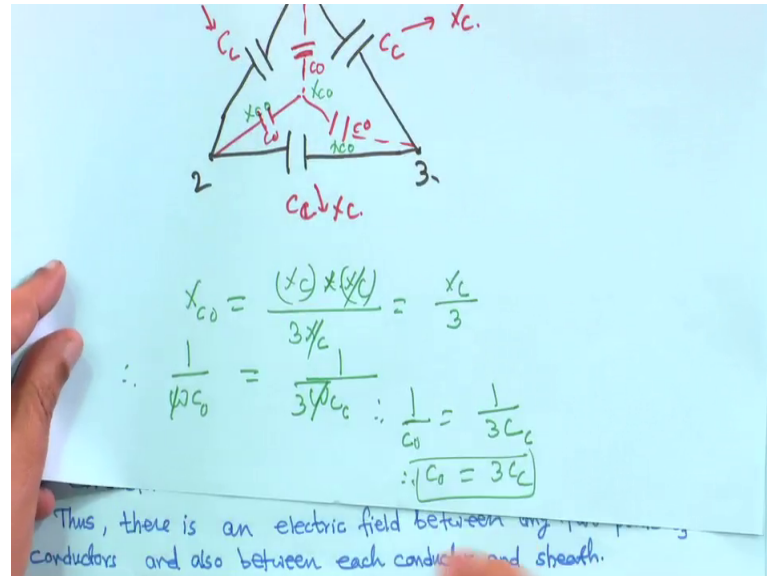 Cc
Cc → Xc.
C0
Xc0
Xc0
C0
C0
Xc0
2
3.
Cc ↓ Xc.
Xc0 = (Xc) * (Xc) / 3Xc = Xc / 3
∴ 1 / ωC0 = 1 / 3ωCc ∴ 1 / C0 = 1 / 3Cc
∴ C0 = 3Cc
Thus, there is an electric field between any
conductors and also between each conductor and sheath.